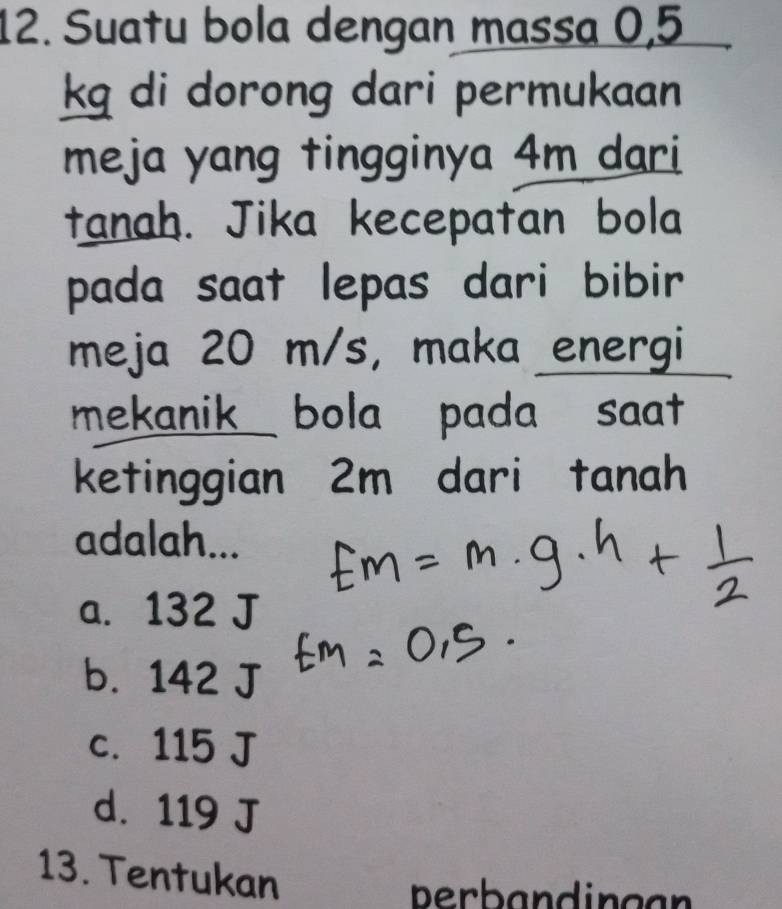 12. Suatu bola dengan massa 0,5
kg di dorong dari permukaan
meja yang tingginya 4m dari
tanah. Jika kecepatan bola
pada saat lepas dari bibir
meja 20 m/s, maka energi
mekanik bola pada saat
ketinggian 2m dari tanah
adalah...
Em = m . g . h + 1/2
a. 132 J
Em = 0,5 .
b. 142 J
c. 115 J
d. 119 J
13. Tentukan perbandingan